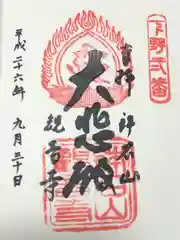 下野
奉拝
鉢石山
大悲殿
観音寺
平成二十六年 九月三十日